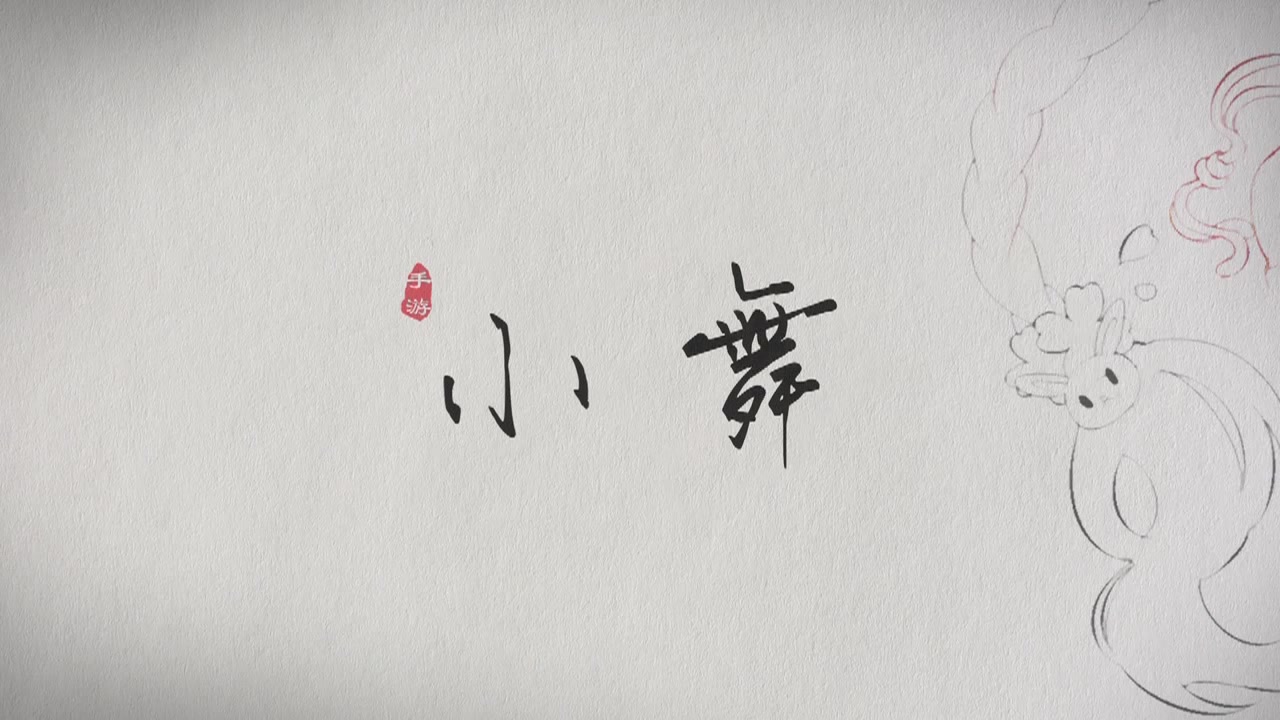 手游
小舞